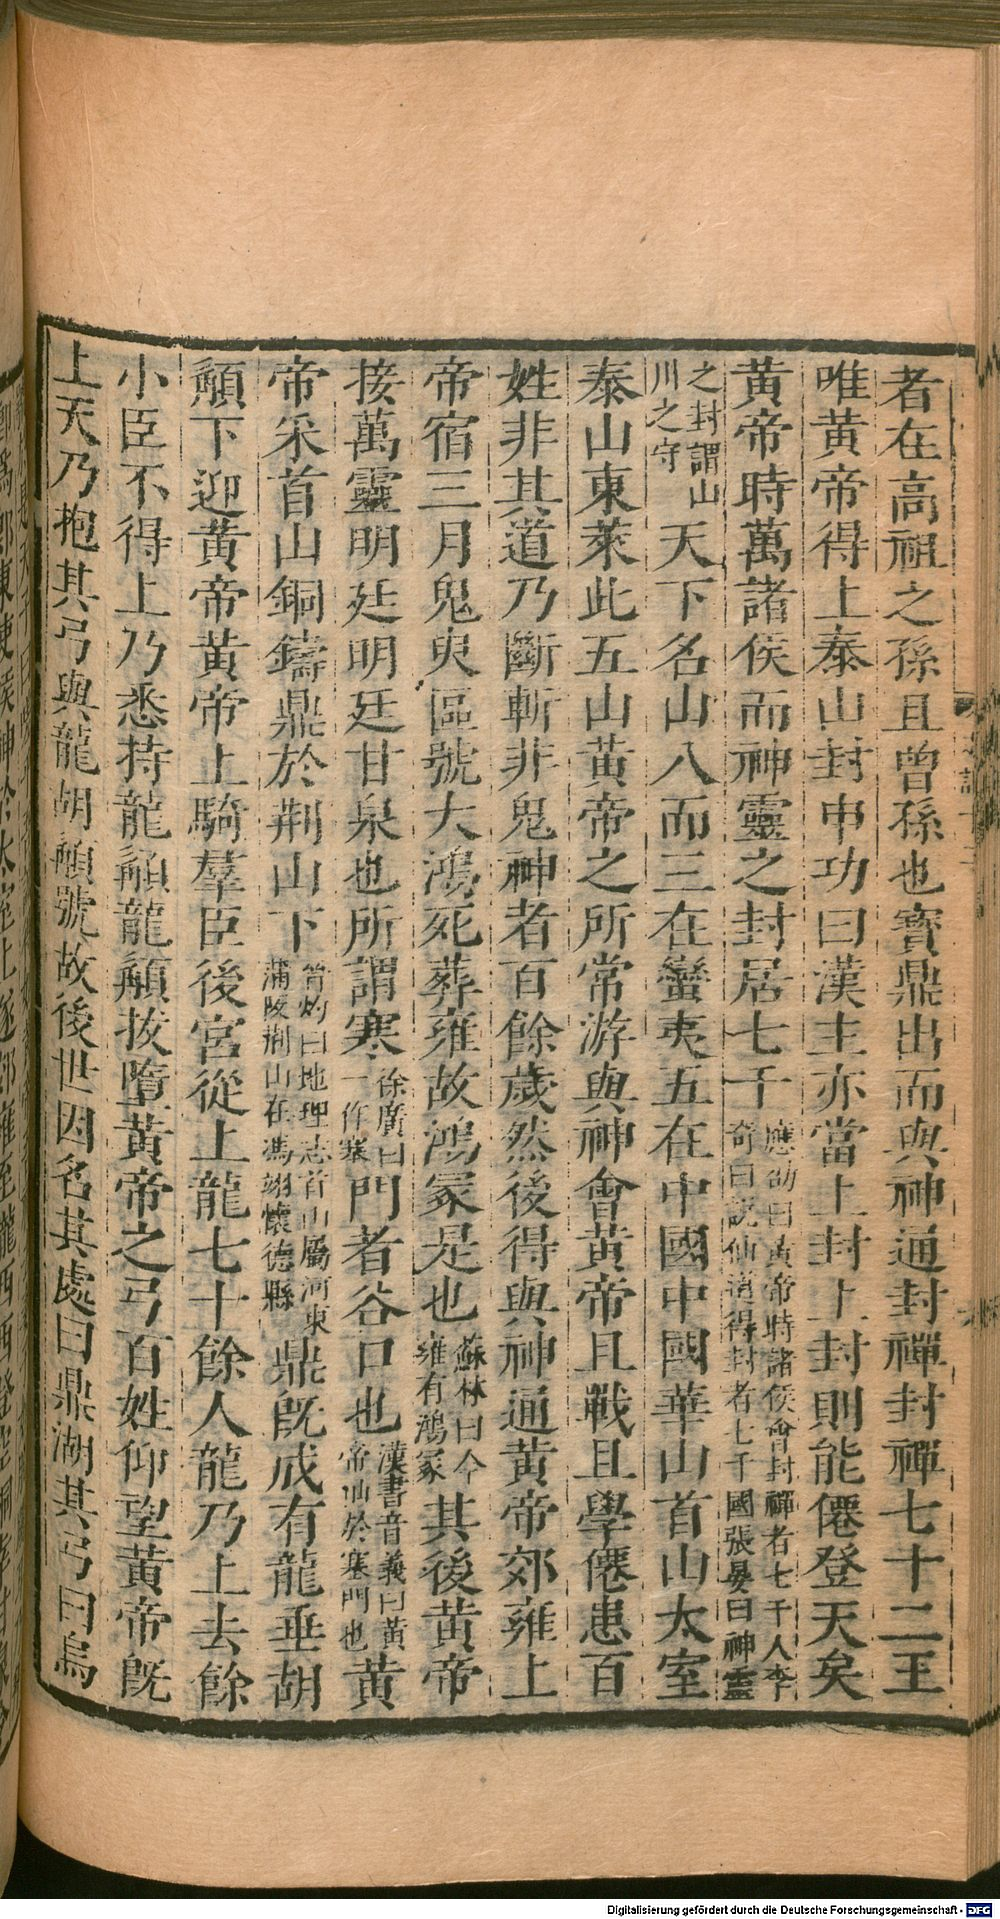 者在高祖之孫且曾孫也寳鼎出而與神通封禪封禪七十二王
唯黃帝得上泰山封申功曰漢主亦當上封上封則能僊登天矣
黃帝時萬諸侯而神靈之封居七千應劭曰黃帝時諸侯會封禪者七千人李奇曰説仙道得封者七千國張晏曰神靈
之封謂山川之守天下名山八而三在蠻夷五在中國中國華山首山太室
泰山東萊此五山黃帝之所常游與神會黃帝且戰且學僊患百
姓非其道乃斷斬非鬼神者百餘歲然後得與神通黃帝郊雍上
帝宿三月鬼臾區號大鴻死葬雍故鴻冢是也蘇林曰今雍有鴻冢其後黃帝
接萬靈明廷明廷甘泉也所謂寒徐廣曰一作塞門者谷口也漢書音義曰黃帝仙於塞門也黃
帝采首山銅鑄鼎於荆山下晉灼曰地理志首山屬河東蒲陂荆山在馮翊懷德縣鼎旣成有龍垂胡
髥下迎黃帝黃帝上騎羣臣後宮從上龍七十餘人龍乃上去餘
小臣不得上乃悉持龍髥龍髥拔墮黃帝之弓百姓仰望黃帝旣
上天乃抱其弓與龍胡髥號故後世因名其處曰鼎湖其弓曰烏
Digitalisierung gefördert durch die Deutsche Forschungsgemeinschaft - DFG